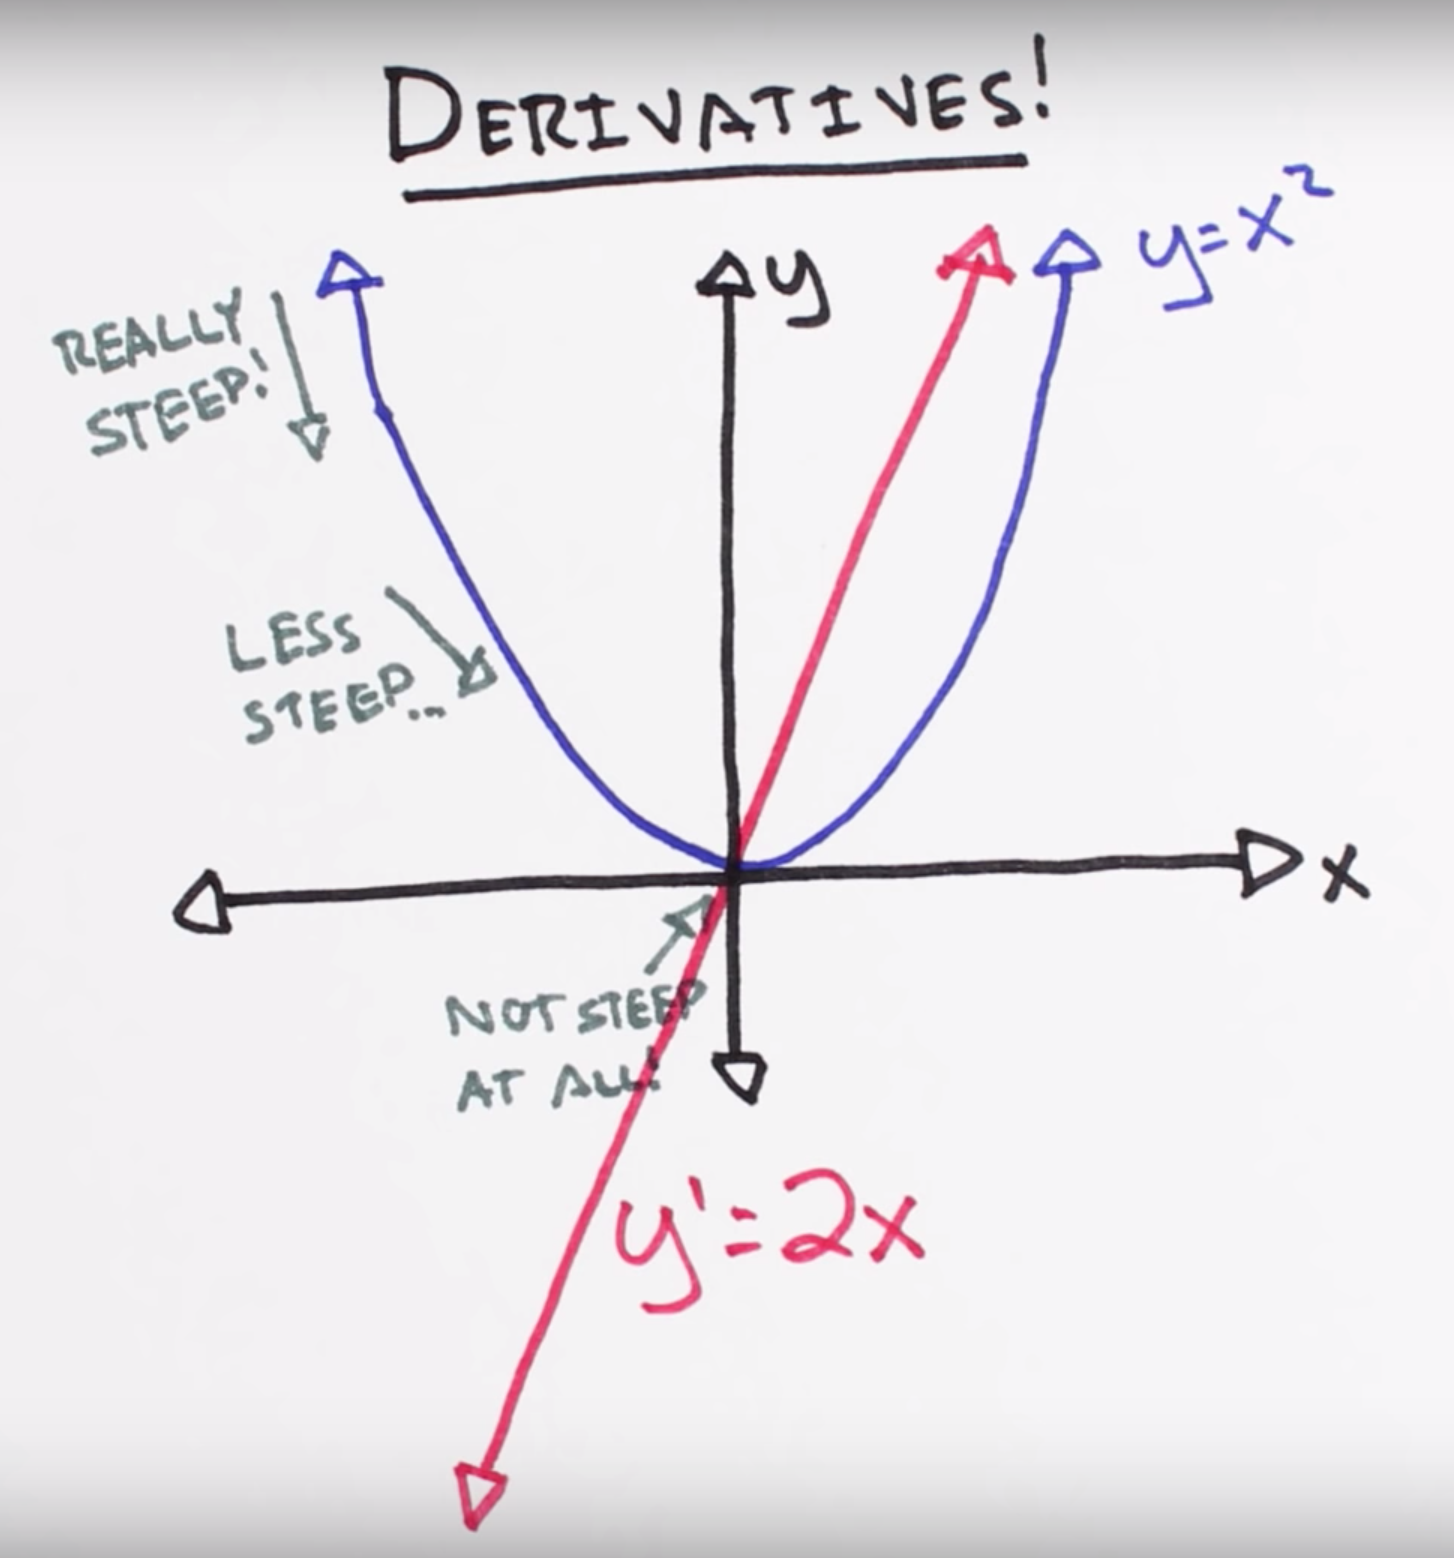 DERIVATIVES!
y = x²
y
REALLY
STEEP!
LESS
STEEP...
x
NOT STEEP
AT ALL!
y' = 2x